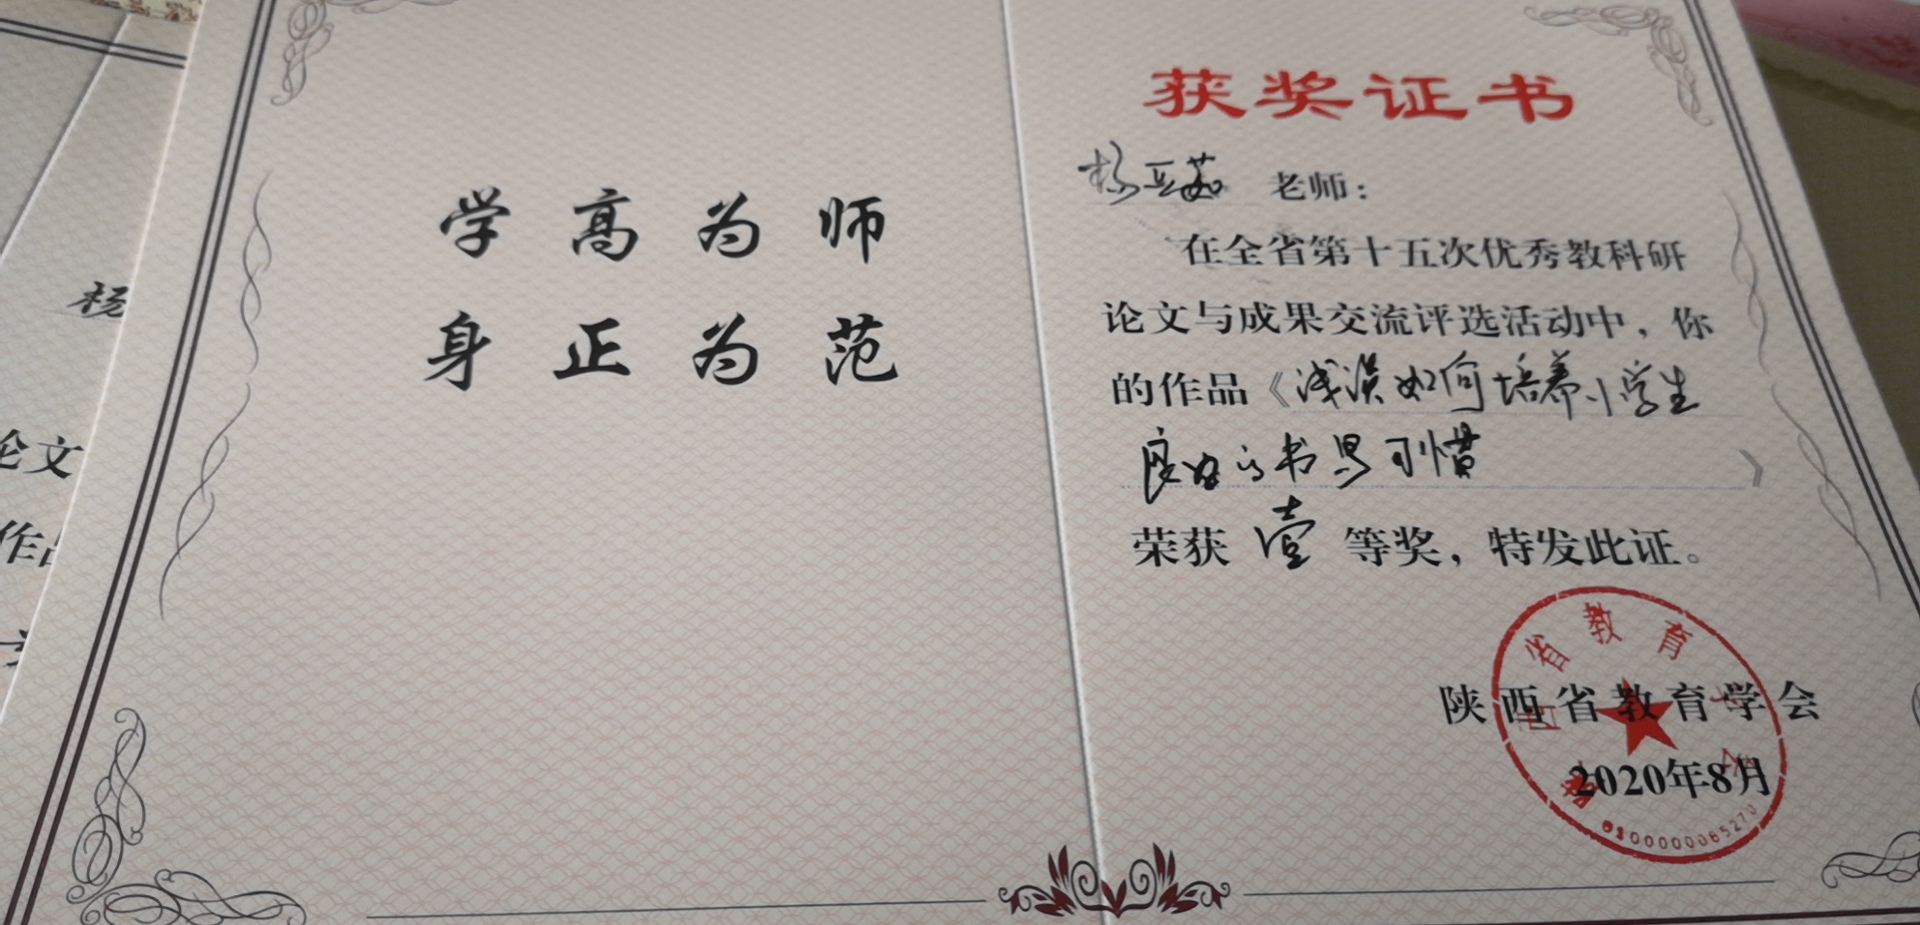 学高为师
身正为范
获奖证书
杨亚茹 老师：
在全省第十五次优秀教科研
论文与成果交流评选活动中，你
的作品《浅谈如何培养小学生
良好的书写习惯》
荣获 壹 等奖，特发此证。
陕西省教育学会
2020年8月
陕西省教育学会
6100000065270
杨
论文
作品